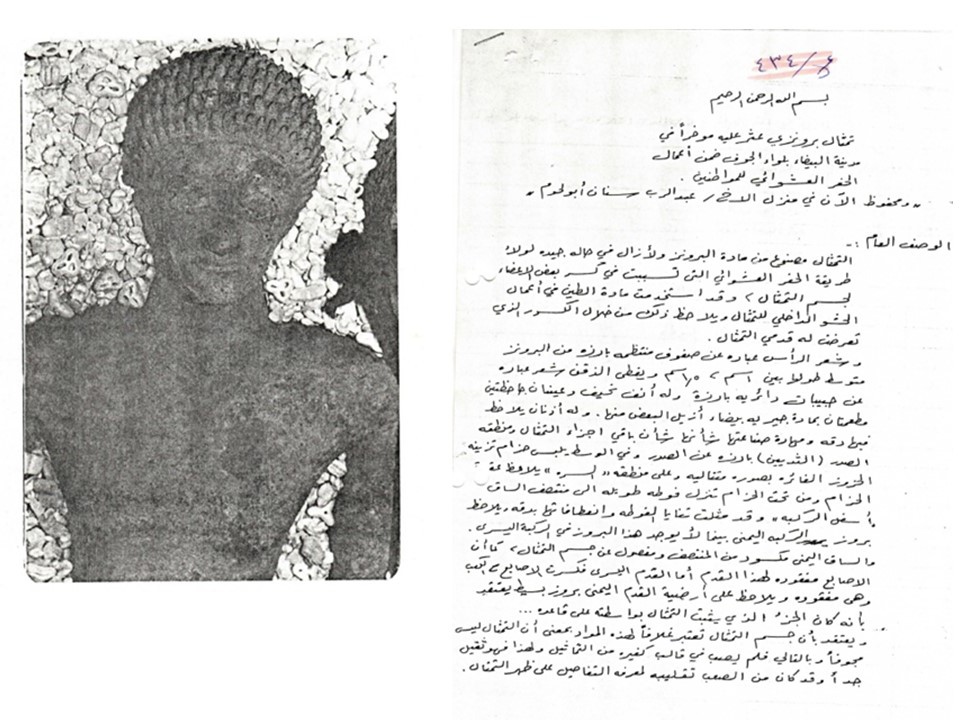 ٤٣٤/٤
بسم الله الرحمن الرحيم
تمثال برونزي عثر عليه مؤخراً في
مدينة البيضاء بلواء الجوف ضمن أعمال
الحفر العشوائي للمواطنين .
" ومحفوظ الآن في منزل الاخ / عبدالرب سنان أبولحوم "
الوصف العام :-
التمثال مصنوع من مادة البرونز ولازال في حاله جيده لولا
طريقة الحفر العشوائي التي تسببت في كسر بعض الاعضاء
لجسم التمثال ، وقد استخدمت مادة الطين في أعمال
الحشو الداخلي للتمثال ويلاحظ ذلك من خلال الكسور الذي
تعرضت له قدمي التمثال .
وشعر الرأس عباره عن صفوف منتظمه بارزه من البرونز
متوسط طولها بين ١سم ، ٥ر١سم ويغطى الذقن شعر عباره
عن حبيبات دائريه بارزة وله أنف نحيف وعينان جاحظتين
مطعمتان بمادة جيريه بيضاء أزيل البعض منها . وله أذنان يلاحظ
فيها دقه ومهارة صناعتها شأنها شأن باقي اجزاء التمثال ومنطقه
الصدر (الثديين) بارزه عن الصدر وفي الوسط يلبس حزام تزينه
الحزوز الغائره بصوره متتاليه وعلى منطقه " السره " يلاحظ
الحزام ومن تحت الحزام تنزل فوطه طويله الى منتصف الساق
" أسفل الركبه " وقد مثلت ثنايا الفوطه وانعطافاتها بدقه ويلاحظ
بروز الركبه اليمنى بينما لا يوجد هذا البروز في الركبة اليسرى .
والساق اليمنى مكسور من المنتصف ومفصول عن جسم التمثال ، كما أن
الاصابع مفقوده لهذا القدم أما القدم اليسرى فكسرت الاصابع الكعب
وهى مفقوده ويلاحظ على أرضية القدم اليمنى بروز بسيط يعتقد
بأنه كان الجزء الذي يثبت التمثال بواسطته على قاعده ...
ويعتقد بأن جسم التمثال تعتبر غلافاً لهذه المواد بمعنى أن التمثال ليس
مجوفاً وبالتالي فلم يصب في قالب كغيره من التماثيل ولهذا فهو ثقيل
جداً وقد كان من الصعب تقليبه لمعرفه التفاصيل على ظهر التمثال .